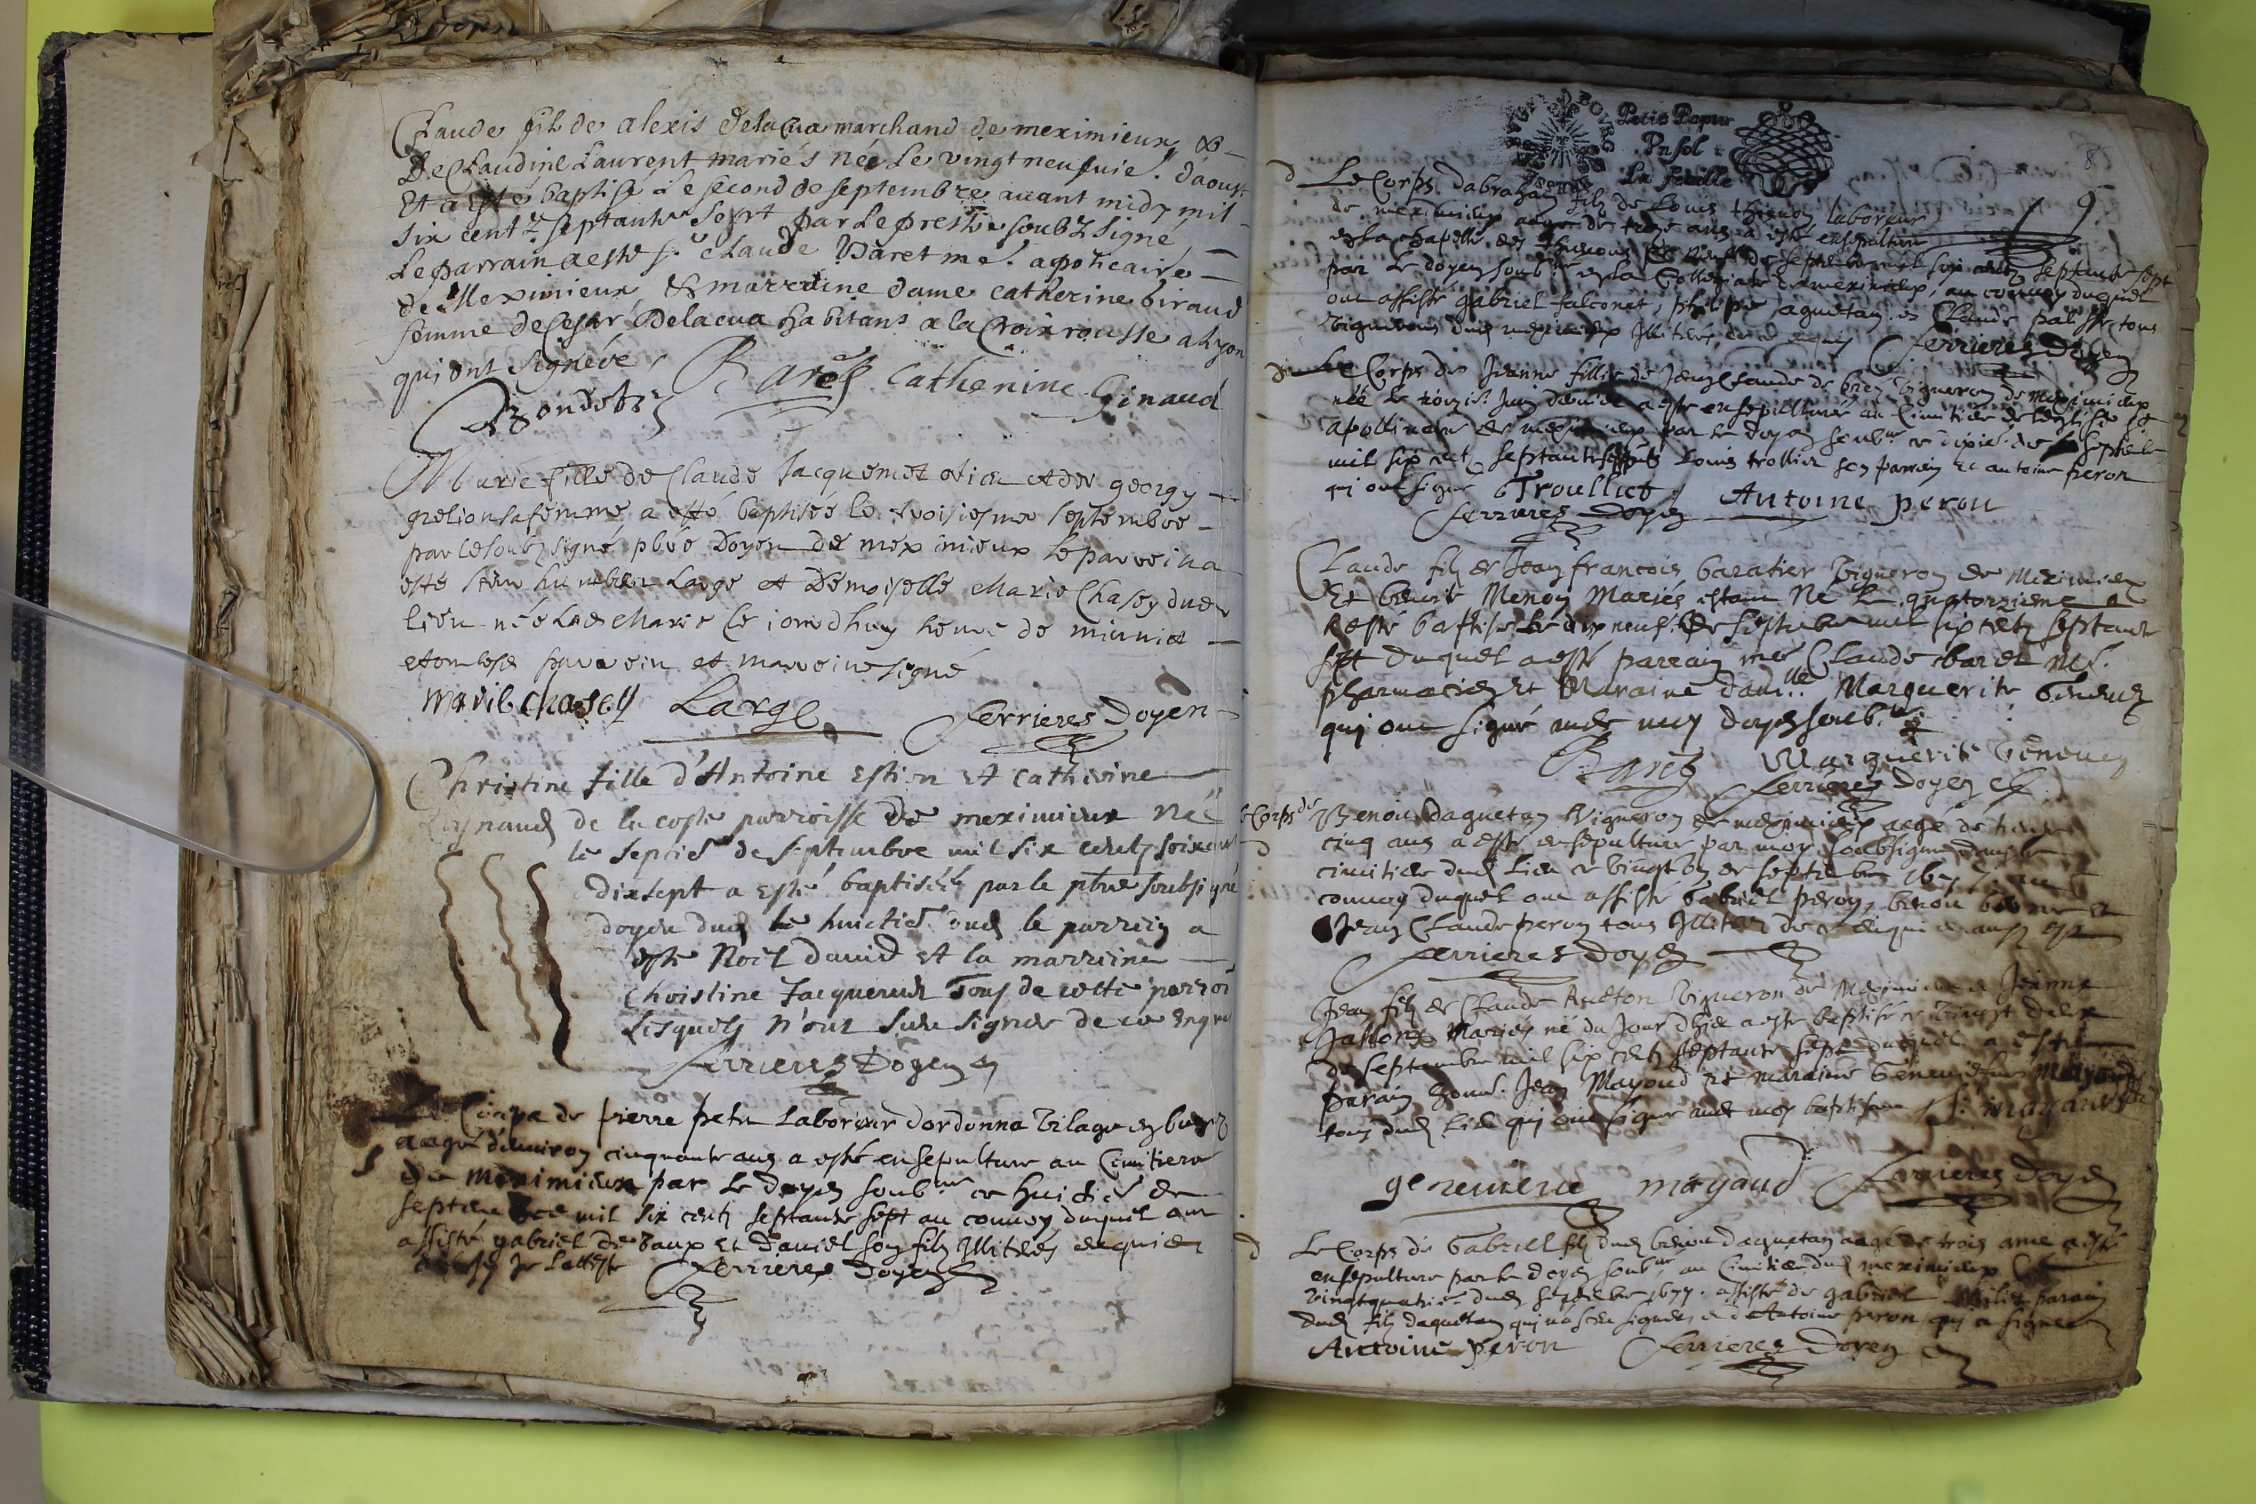 Claude fils de alexis delacua marchand de meximieux &
De Claudine Laurent mariés née Le vingt neufuie. d'aoust
Et a esté baptisé Le second de septembre auant midy mil
six centz septante sept par Le prestre soubz signé
Le parrain a esté sr. Claude Baret me. apoticaire
de Meximieux & marraine dame catherine giraud
femme de Cesar Delacua habitans a la Croix rousse a Lyon
qui ont signéve
Baret Catherine Giraud
Marie fille de Claude Jacquemet et de georgy
grelion sa femme a esté baptisée le troisiesme septembre
par le soubz signé pbre Doyen de meximieux le parrein a
esté sieur humbert Large et Demoiselle Marie Chasey dud
lieu née lad Marie le iourdhuy heure de minuict
et ont lesd parrein et marreine signé
marie chasey Large Ferrieres Doyen
Christine fille d'Antoine Estion et Catherine
Reynaud de la coste parroisse de meximieux née
le septie de septembre mil six centz soixante
dixsept a esté baptisée par le pbre soubsigné
doyen dud le huictie. dud le parrein a
esté Noël david et la marreine
Christine Jacquemet Tous de cette parroi
Lesquels n'ont sceu signer de ce enquis
Ferrieres Doyen
Le Corps de pierre petit Laboreur dordonna vilage en
aagé denviron cinquante ans a esté ensepulturé au Cimitiere
de Meximieux par Le doyen soub.né ce huictie de
septembre mil six centz septante sept au convoy duquel ont
assisté gabriel de vaux et Daniel son filz Illiterés enquis
Ferrieres Doyen
Petit Papier
Un sol
La feuille
8
9
Le Corps dabraham filz de Louis thienon laboreur
de meximieux aagé de treze ans a esté ensepulturé
en la chapelle des septembre mil six centz septante sept
par Le doyen soub en la Collegiate de meximieux, au convoy duquel
ont assisté gabriel falconet, philipe daguetan et Claude tous
vignerons dud meximieux Illiterés enquis Ferrieres Doyen
Le Corps de Jeanne fillie de Jean Claude de vigneron de meximieux
née le Juin dernier a esté ensepulturé au Cimitiere de leglise St
apollinaire de meximieux par le doyen soub.né ce dixie. de septembre
mil six cent septante sept Louis trollier son parrein et antoine peron
qi ont signé Troulliet Antoine peron
Ferrieres Doyen
Claude filz de Jean francois baratier vigneron de Meximieux
Et benoite Menon Mariés estant Né le quatorzieme a
a esté baptisé le dix neuf de septembre mil six cent septante
sept duquel a esté parrain me Claude baret Me.
pharmacien et Maraine dam.lle Marguerite Geneuey
qui ont signé avec moy doyen soub.né
Baret Marguerite Geneuey
Ferrieres Doyen
Le Corps de Benoit daguetan vigneron de meximieux aagé de trente
cinq ans a esté ensepulturé par moy soubsigné dans le
cimitiere dud Lieu ce vingt un de septembre 1677 au
convoy duquel ont assisté Gabriel peron, benoit et
Jean Claude peron tous Illiterés de ce enquis
Ferrieres Doyen
Jean filz de Claude vigneron de Meximieux et Jeanne
Jallon Mariés né du Jour dhier a esté baptisé ce vingt deux
de septembre mil six centz septante sept duquel a esté
parain honne. Jean Mayoud et maraine Geneuieue Mayoud
tous dud Lieu qui ont signé avec moy J. mayaud
geneuieue mayaud Ferrieres Doyen
Le Corps de Gabriel filz dud benoit daguetan aagé de trois ans a esté
ensepulturé par le doyen soub.né au Cimitiere dud meximieux le
vingtquatrie dud septembre 1677. assisté de gabriel parain
dud filz daguetan qui n'a sceu signer et dAntoine peron qi a signé
Antoine peron Ferrieres Doyen